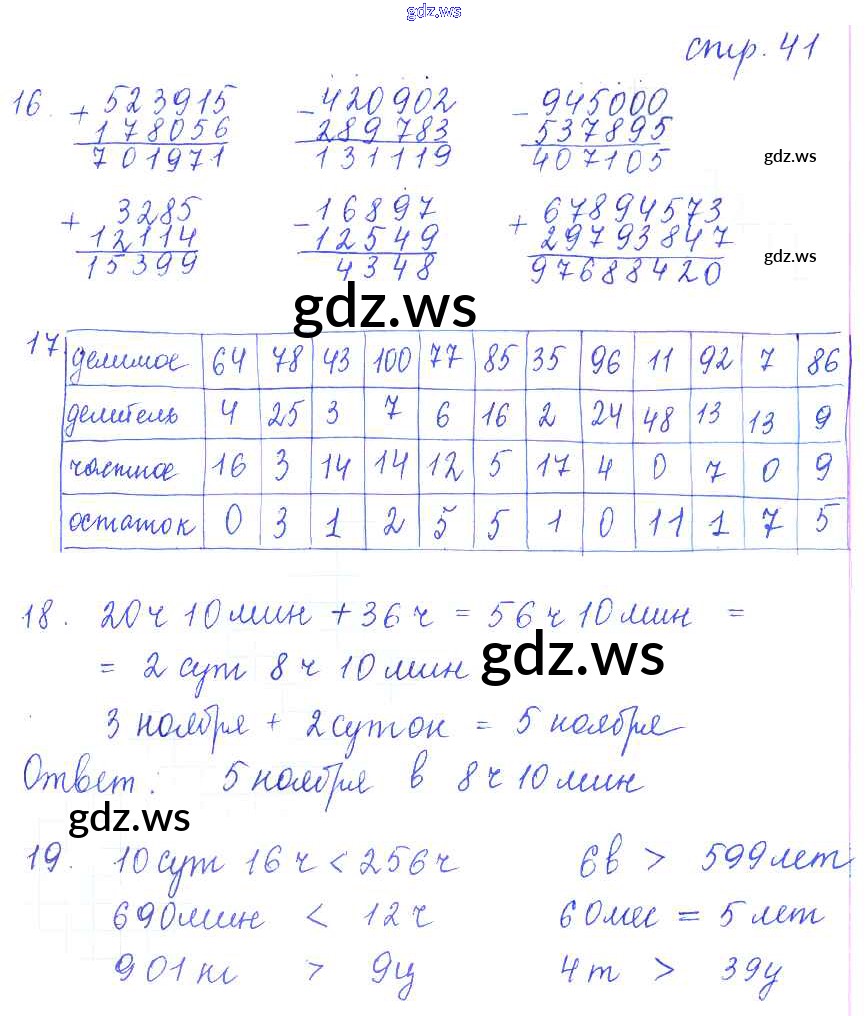 gdz.ws
стр. 41
16. + 523915 - 420902 - 945000
178056 289783 537895
701971 131119 407105
gdz.ws
+ 3285 - 16897 + 67894573
12114 12549 29793847
15399 4348 97688420
gdz.ws
gdz.ws
17 делимое 64 78 43 100 77 85 35 96 11 92 7 86
делитель 4 25 3 7 6 16 2 24 48 13 13 9
частное 16 3 14 14 12 5 17 4 0 7 0 9
остаток 0 3 1 2 5 5 1 0 11 1 7 5
18. 20ч 10мин + 36ч = 56ч 10мин =
= 2 сут 8ч 10мин
gdz.ws
3 ноября + 2 суток = 5 ноября
Ответ: 5 ноября в 8ч 10мин
gdz.ws
19. 10сут 16ч < 256ч 6в > 599лет
690мин < 12ч 60мес = 5 лет
901кг > 9ц 4т > 39ц